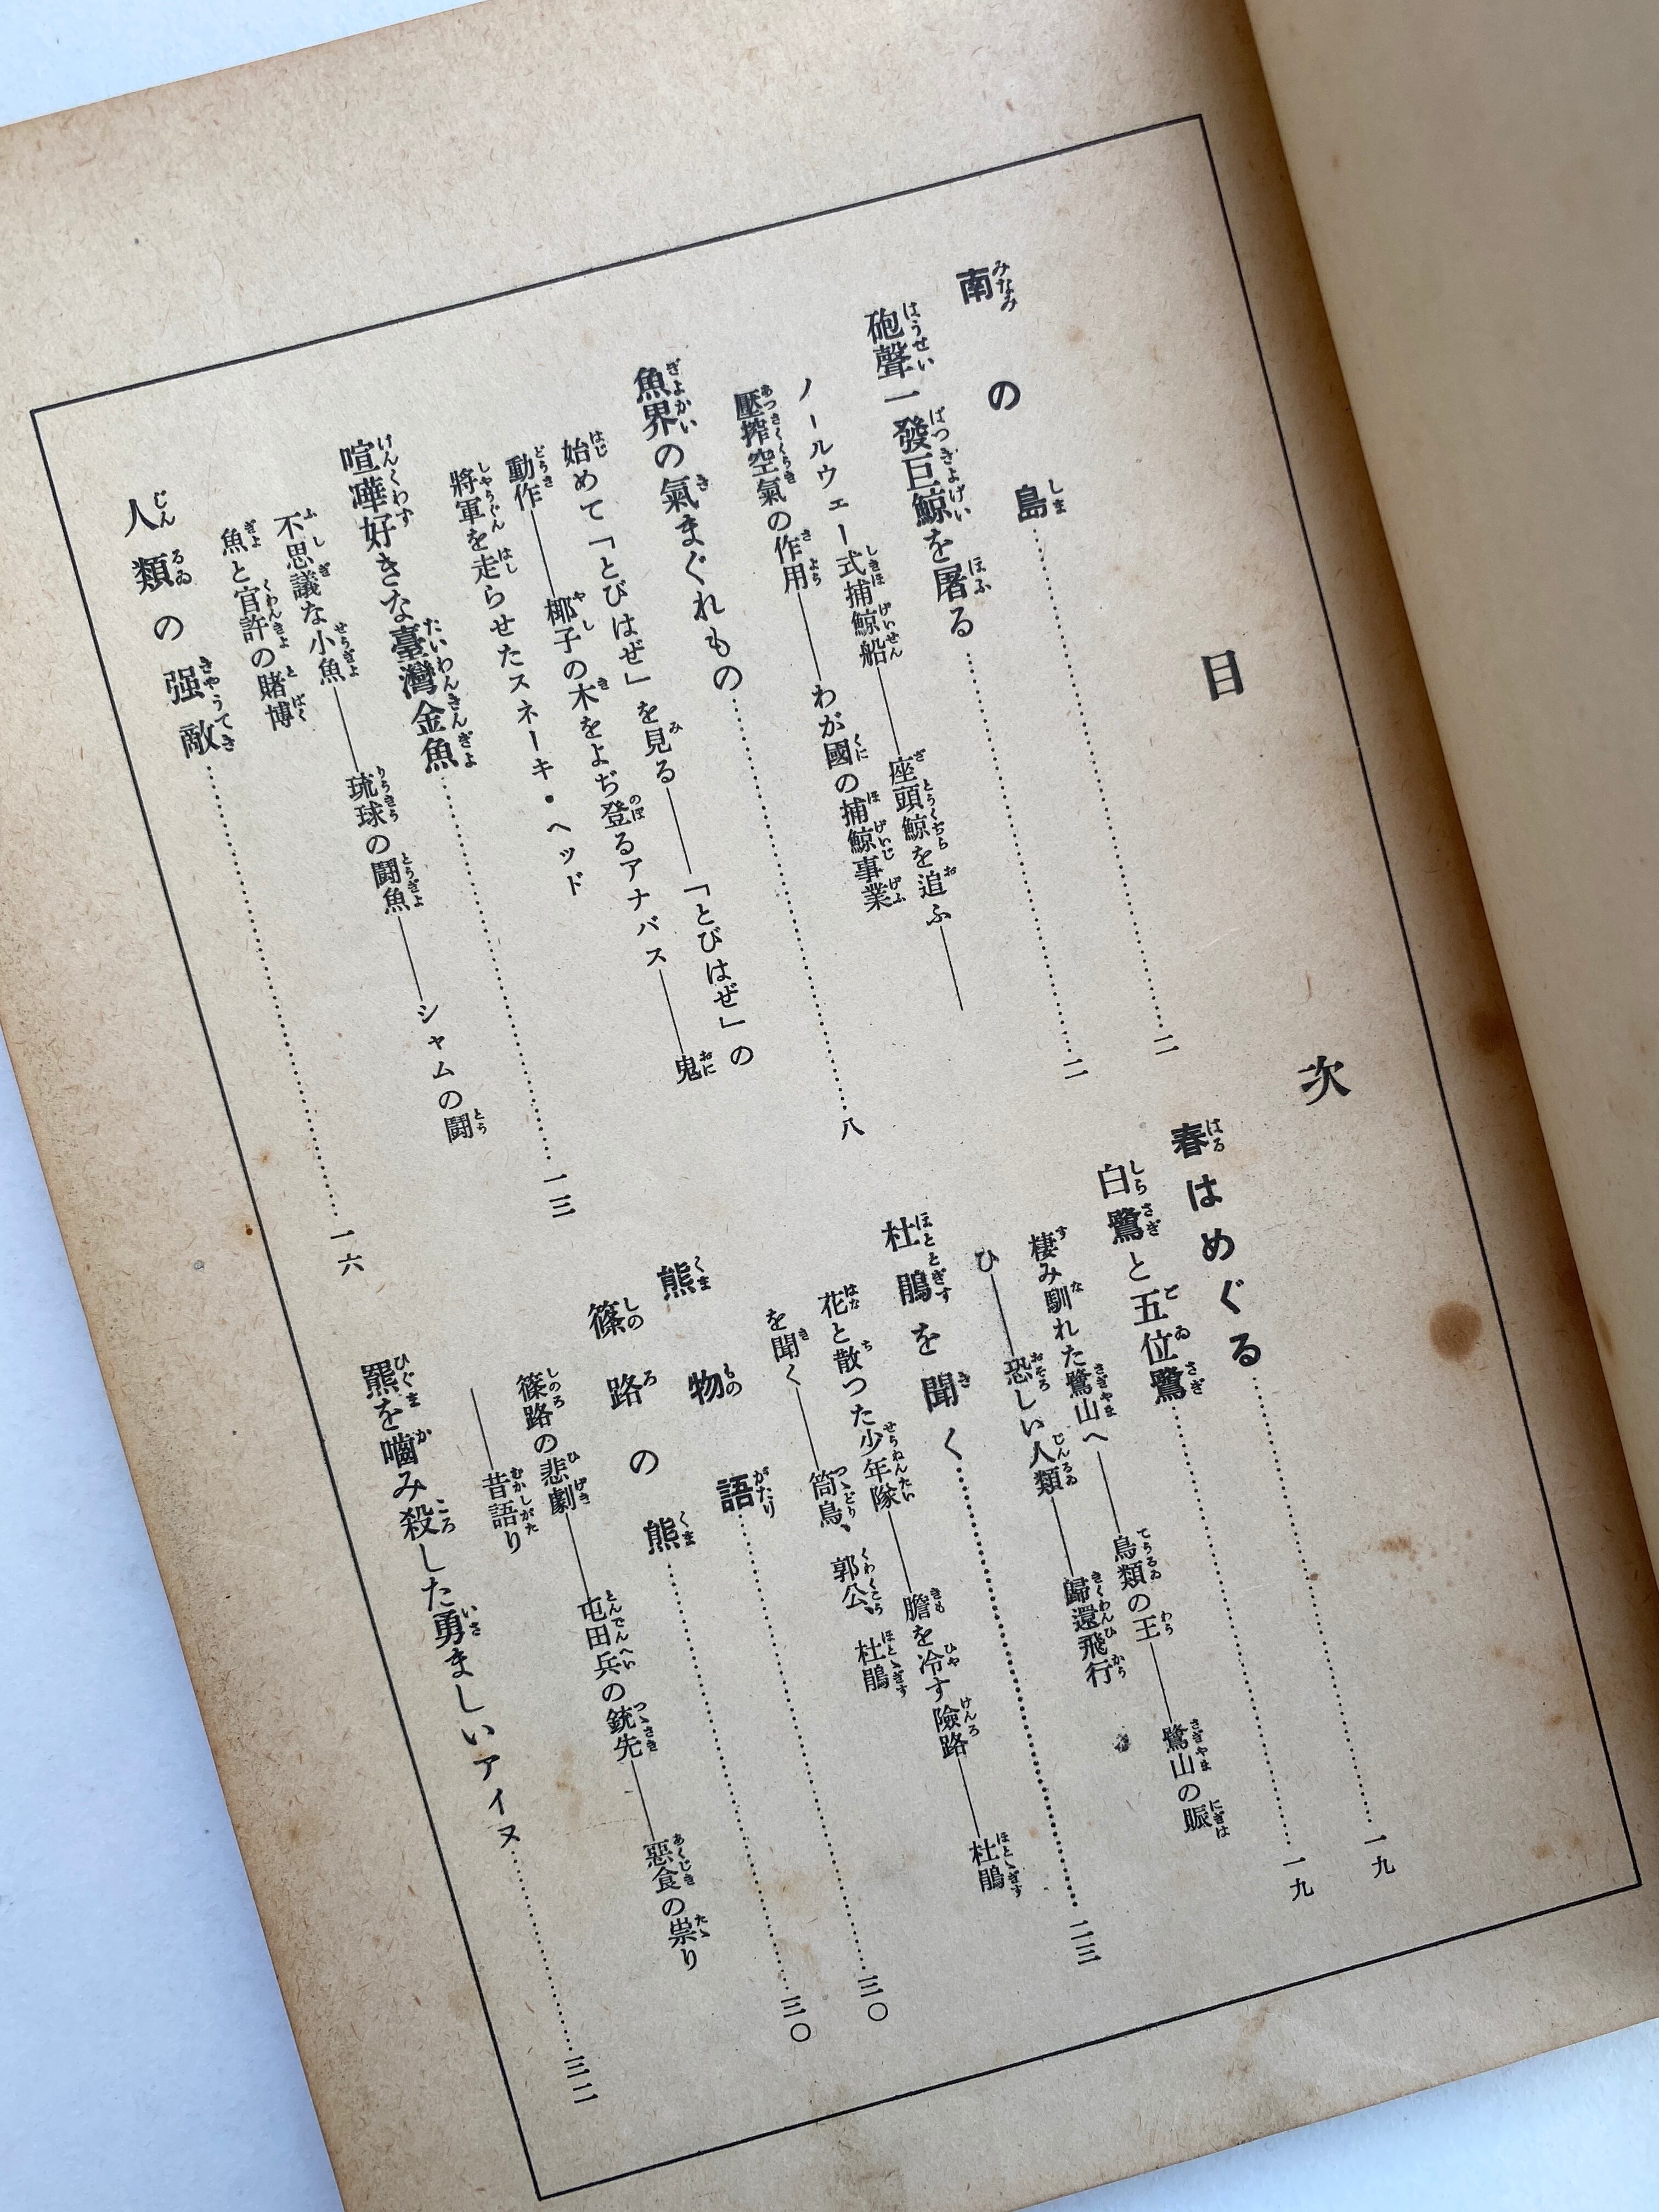 目次
南の島……二
砲聲一發巨鯨を屠る……二
ノールウェー式捕鯨船――座頭鯨を追ふ――
壓搾空氣の作用――わが國の捕鯨事業
魚界の氣まぐれもの……八
始めて「とびはぜ」を見る――「とびはぜ」の
動作――椰子の木をよぢ登るアナバス――鬼
將軍を走らせたスネーキ・ヘッド
喧嘩好きな臺灣金魚……一三
不思議な小魚――琉球の鬪魚――シャムの鬪
魚と官許の賭博
人類の强敵……一六
春はめぐる……一九
白鷺と五位鷺……一九
棲み馴れた鷺山へ――鳥類の王――鷺山の賑
ひ――恐しい人類――歸還飛行
杜鵑を聞く……二三
花と散つた少年隊――膽を冷す險路――杜鵑
を聞く――筒鳥、郭公、杜鵑
熊物語……三〇
篠路の熊……三〇
篠路の悲劇――屯田兵の銃先――惡食の祟り
――昔語り
羆を嚙み殺した勇ましいアイヌ……三二